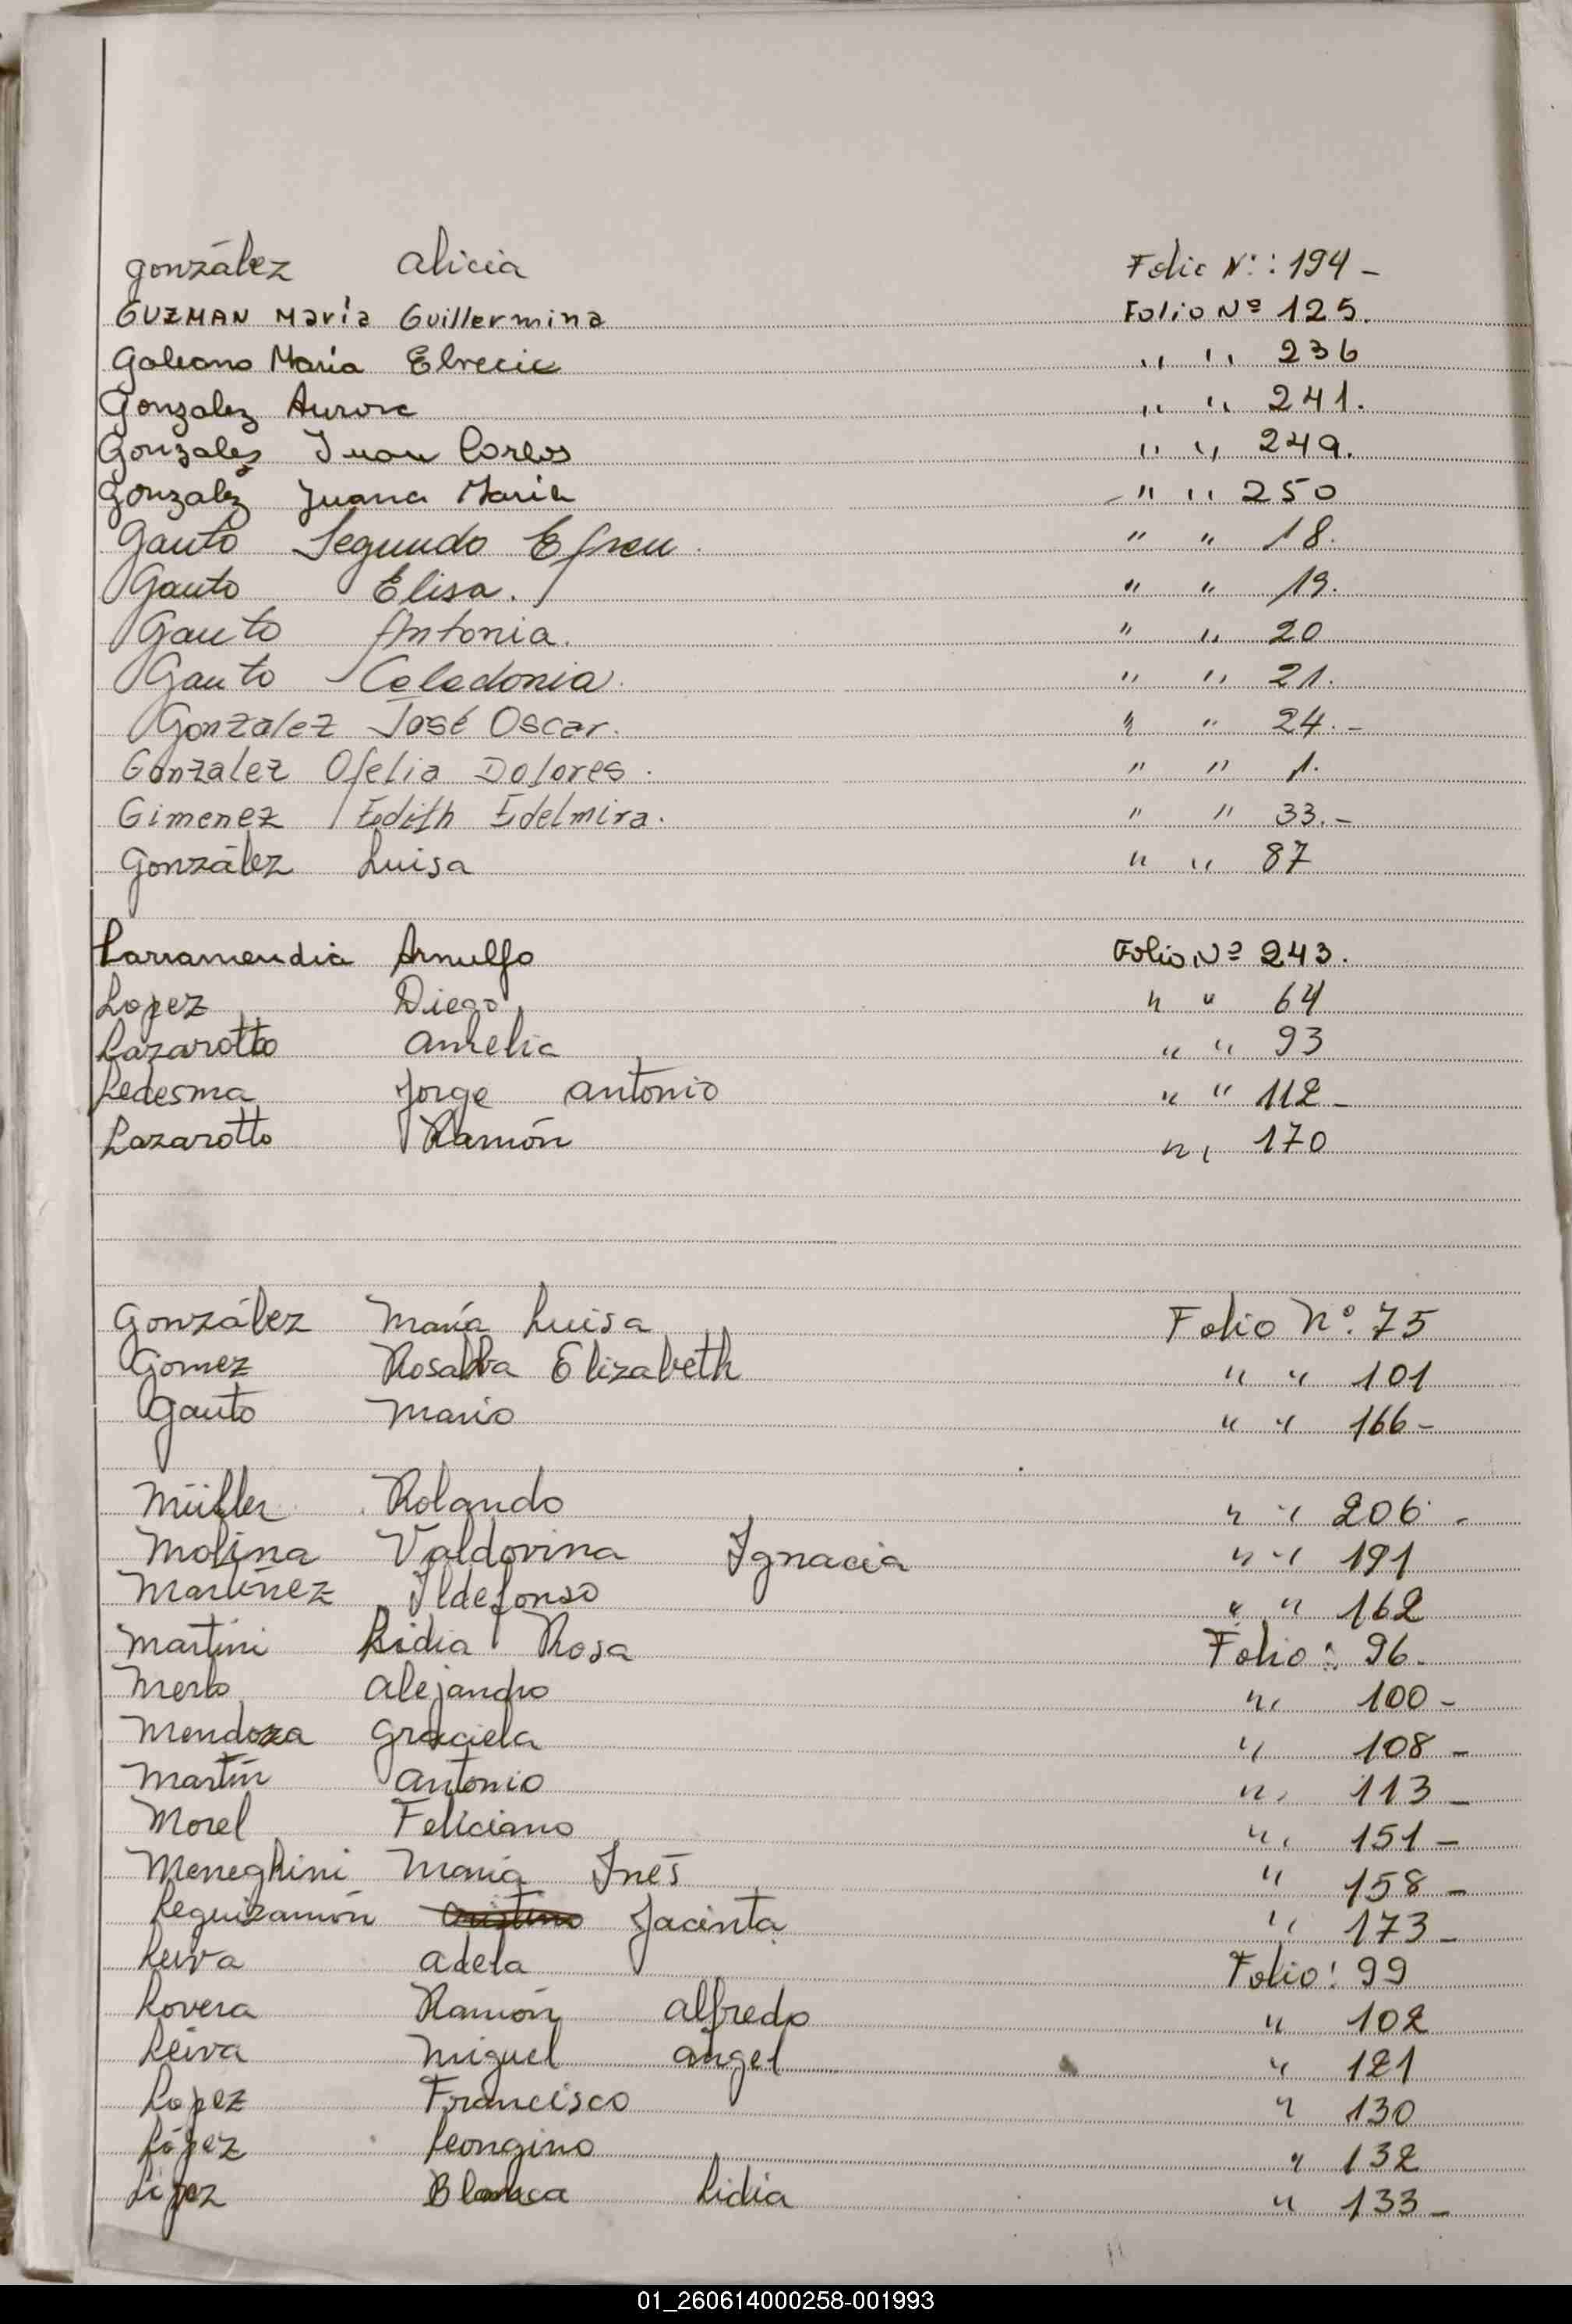 González Alicia Folio Nº: 194 -
GUZMAN María Guillermina Folio Nº 125.
Galeano María Elvecic " " 236
Gonzalez Aurora " " 241.
Gonzalez Juan Carlos " " 249.
Gonzalez Juana Maria - " " 250
Gauto Segundo Efren. " " 18.
Gauto Elisa. " " 19.
Gauto Antonia. " " 20
Gauto Celedonia. " " 21.
Gonzalez José Oscar. " " 24.-
Gonzalez Ofelia Dolores. " " 1.
Gimenez Edith Edelmira. " " 33.-
González Luisa " " 87
Larramendia Arnulfo Folio Nº 243.
Lopez Diego " " 64
Lazarotto Amelia " " 93
Ledesma Jorge Antonio " " 112 -
Lazarotto Ramón " " 170
González María Luisa Folio Nº. 75
Gomez Rosalba Elizabeth " " 101
Gauto Mario " " 166 -
Müller Rolando " " 206 -
Molina Valdovina Ignacia " " 191
Martínez Ildefonso " " 162
Martini Lidia Rosa Folio: 96.
Merlo Alejandro " 100 -
Mendoza Graciela " 108 -
Martín Antonio " 113 -
Morel Feliciano " 151 -
Meneghini María Inés " 158 -
Leguizamón Jacinta " 173 -
Leiva Adela Folio: 99
Lovera Ramón Alfredo " 102
Leiva Miguel Angel " 121
Lopez Francisco " 130
López Leongino " 132
López Blanca Lidia " 133 -
01_260614000258-001993